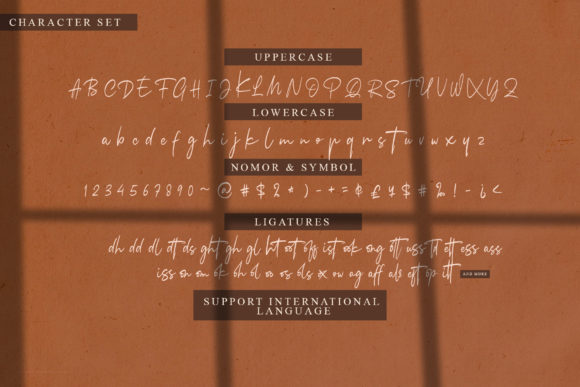 CHARACTER SET
UPPERCASE
A B C D E F G H I J K L M N O P Q R S T U V W X Y Z
LOWERCASE
a b c d e f g h i j k l m n o p q r s t u v w x y z
NOMOR & SYMBOL
1 2 3 4 5 6 7 8 9 0 ~ @ # $ 2 * ) - + = ₽ £ ¥ $ # ‰ ! - ¿ <
LIGATURES
dh dd dl dt ds ght gh gl ht oot off ist ook ong ott uss tt ett ess ass
iss on om ok oh ol oo os ols ox ow ag aff als eft op itt AND MORE
SUPPORT INTERNATIONAL
LANGUAGE